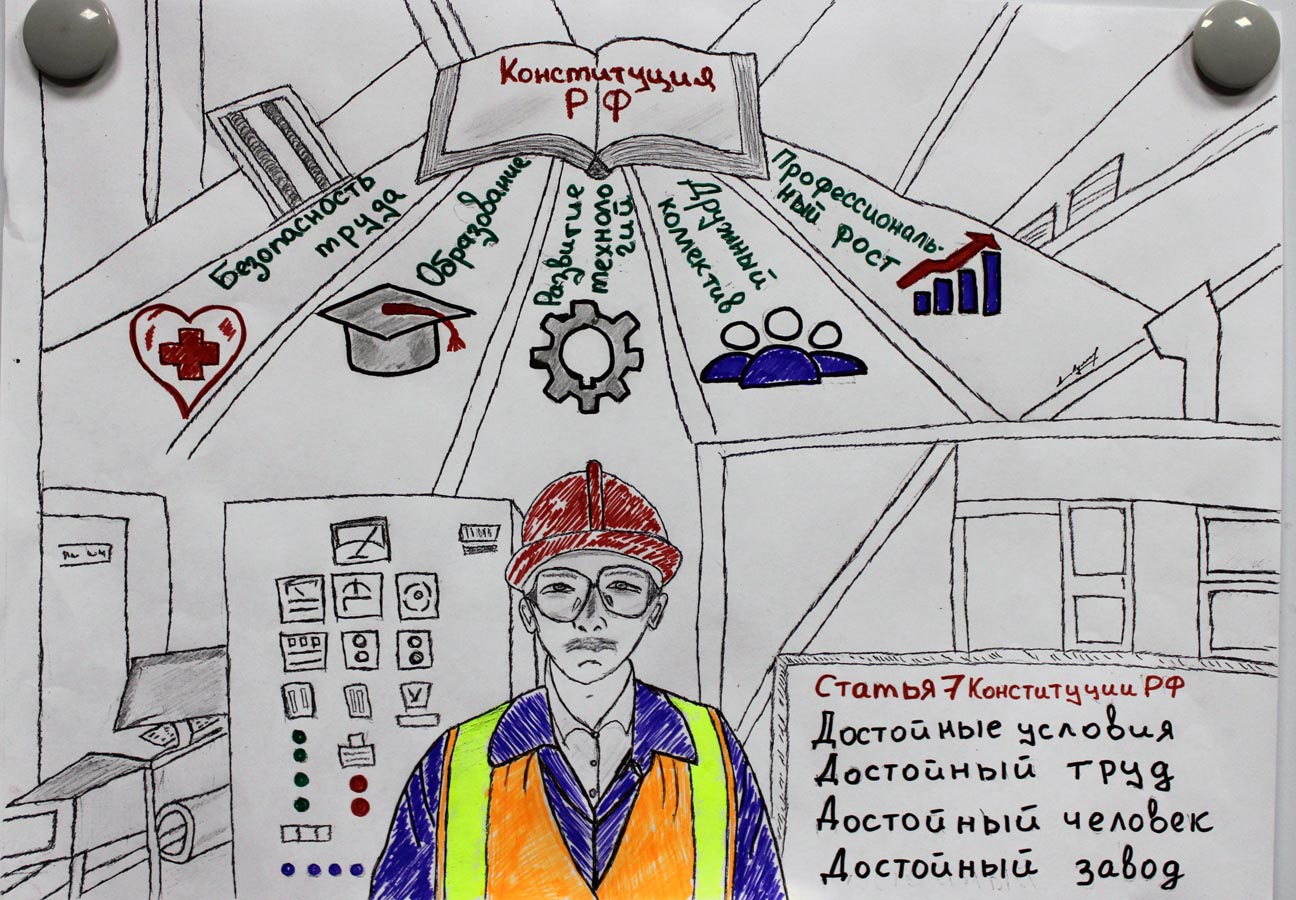 Конституция
РФ
Безопасность
труда
Образование
Развитие
техноло
гий
Дружный
коллектив
Профессиональ-
ный рост
Статья 7 Конституции РФ
Достойные условия
Достойный труд
Достойный человек
Достойный завод